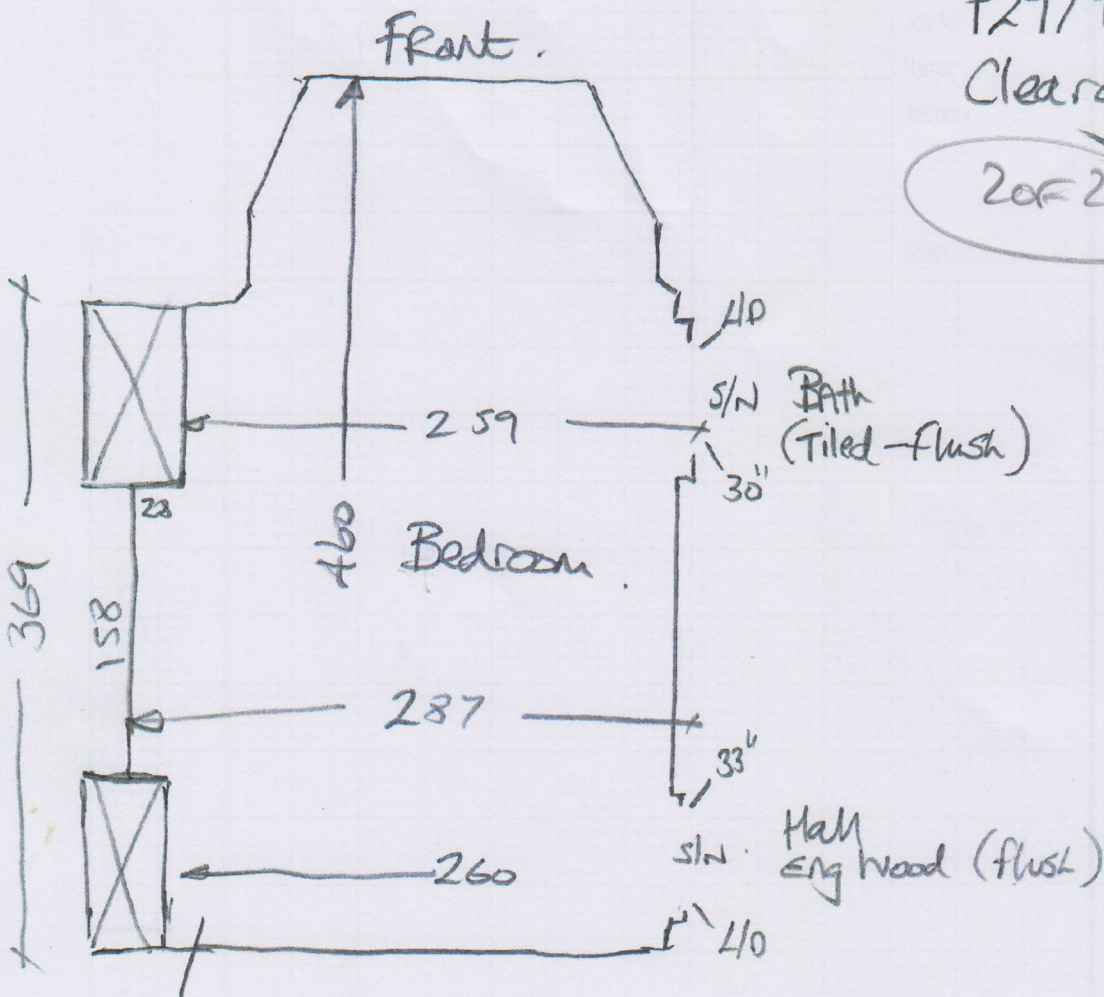 Front.
2 OF 2
L/D
S/N Bath
(Tiled-flush)
259
30"
23
460
Bedroom.
369
158
287
33"
Hall
S/N. Eng Wood (flush)
260
L/D